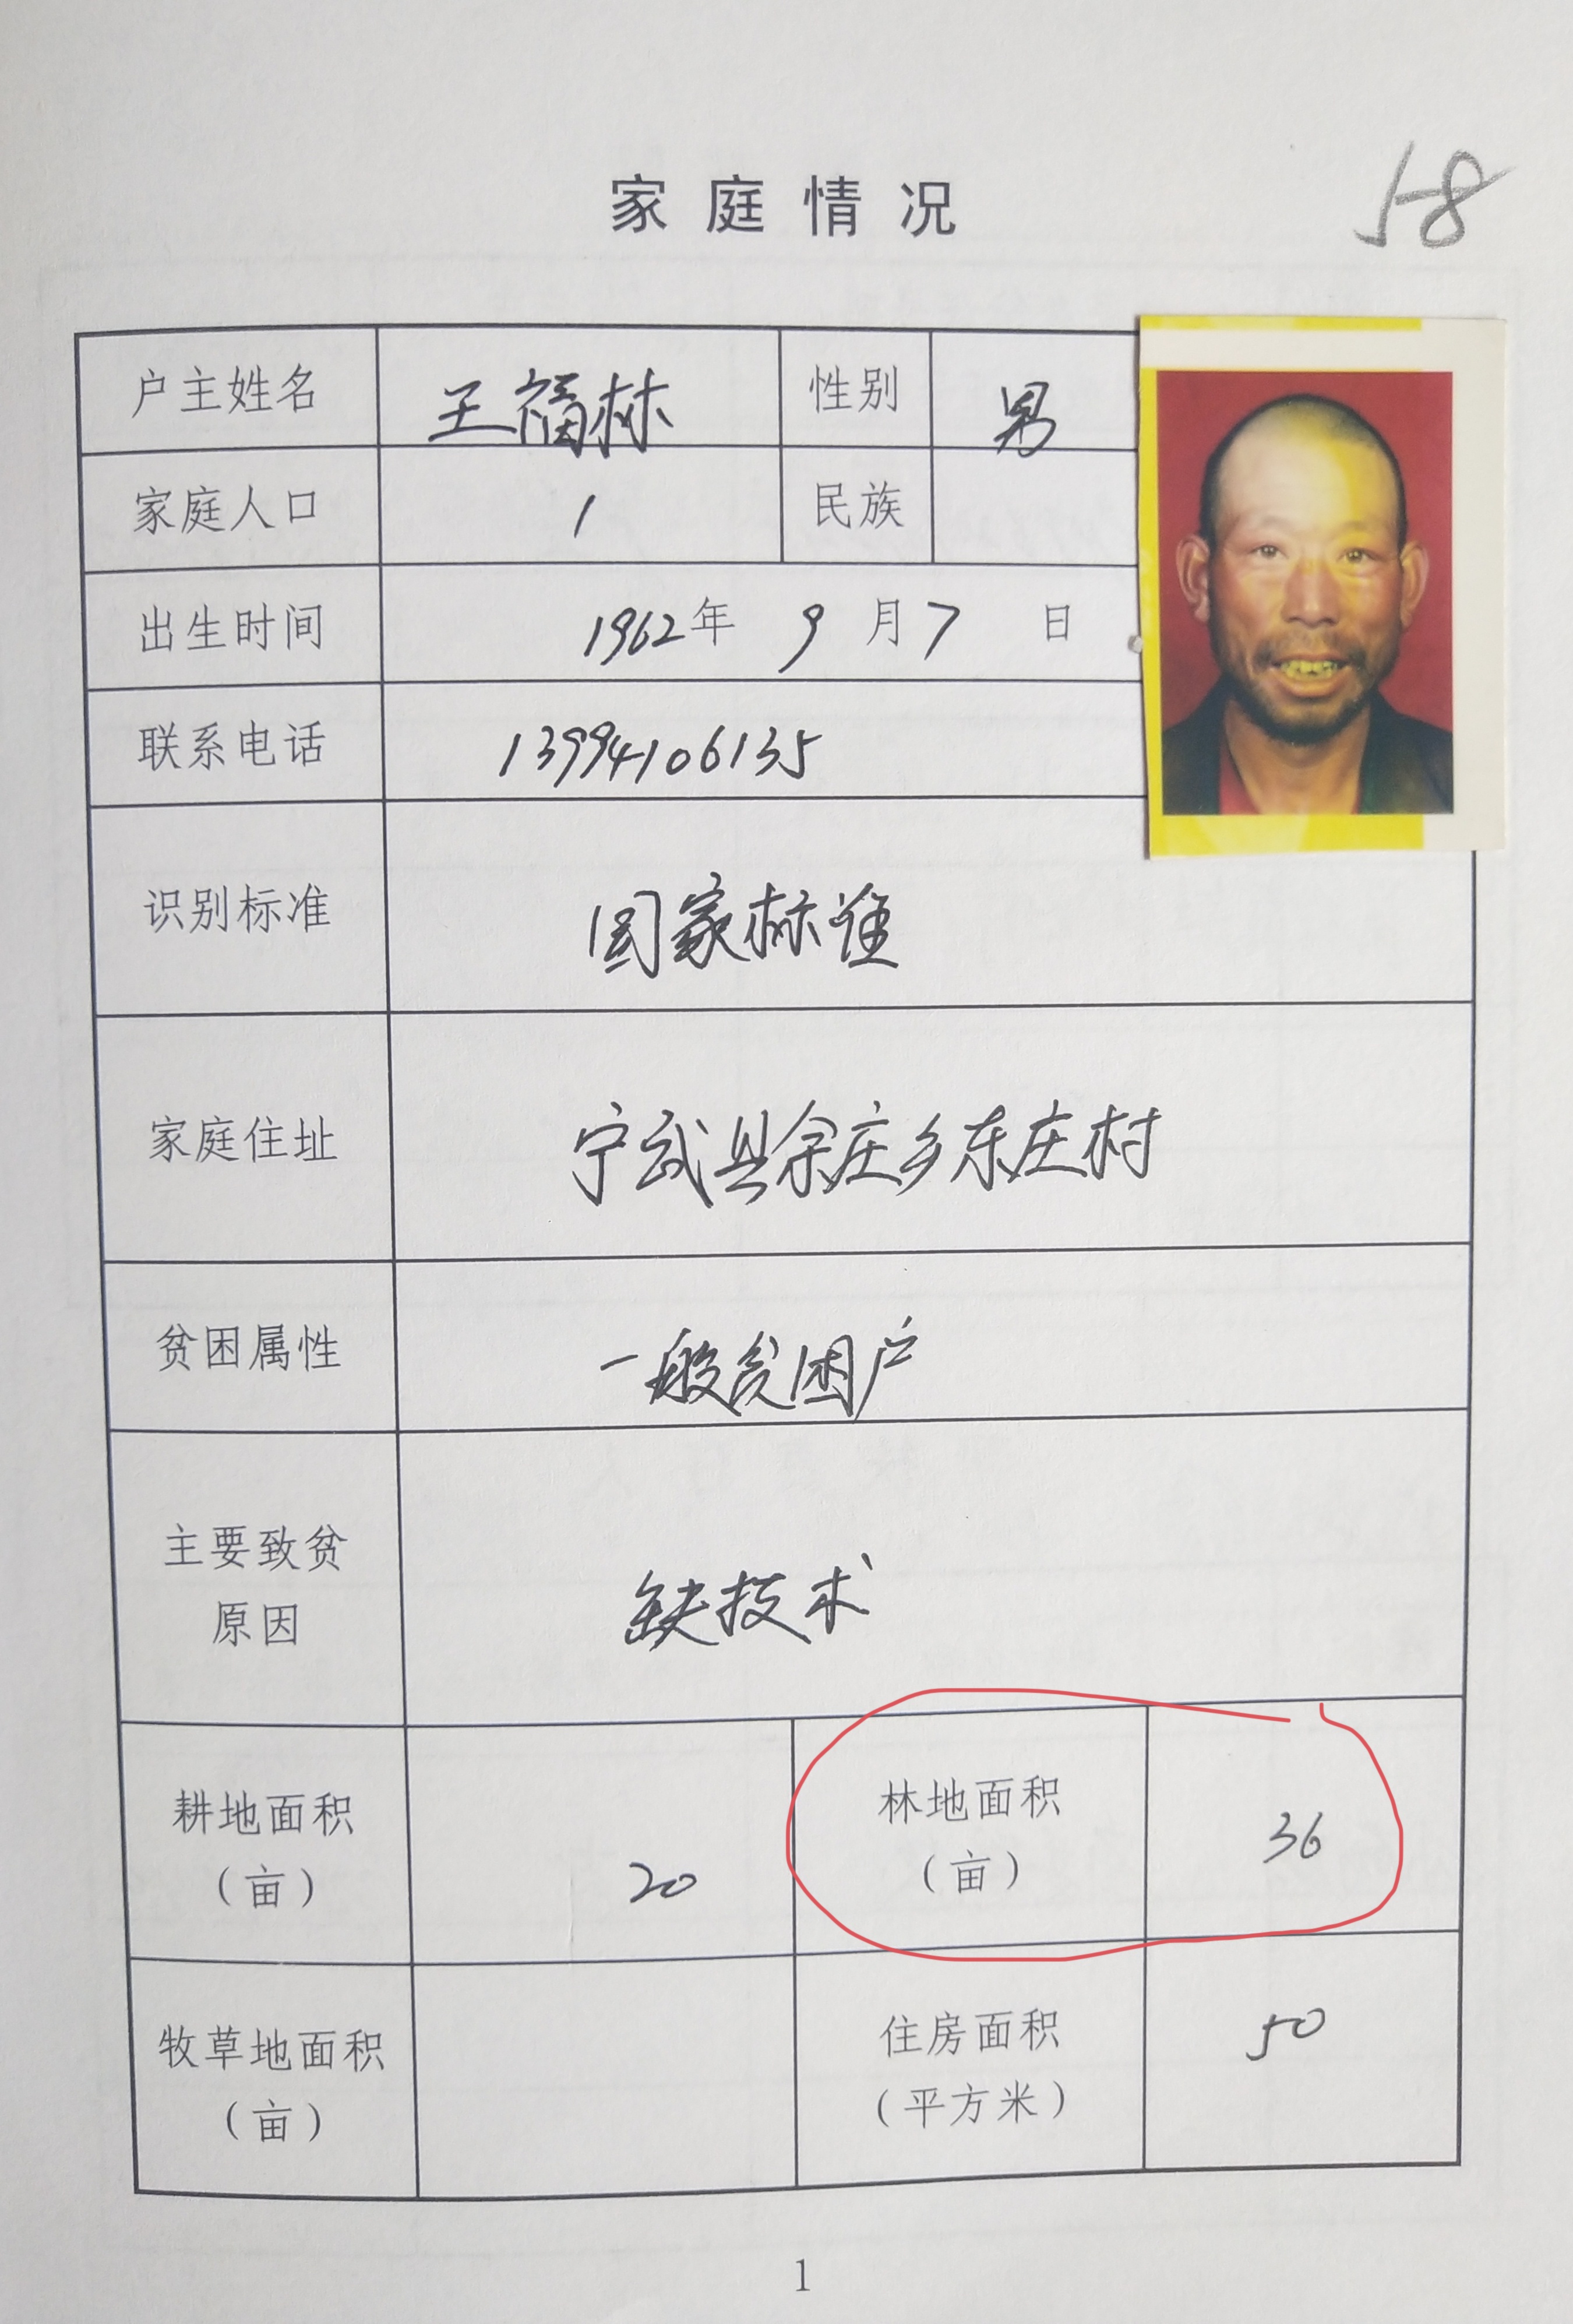 家庭情况
58
户主姓名 王福林 性别 男
家庭人口 1 民族
出生时间 1962年 9月7日
联系电话 13994106135
识别标准 国家标准
家庭住址 宁武县余庄乡东庄村
贫困属性 一般贫困户
主要致贫
原因 缺技术
耕地面积
（亩） 20
林地面积
（亩） 36
牧草地面积
（亩）
住房面积
（平方米） 50
1